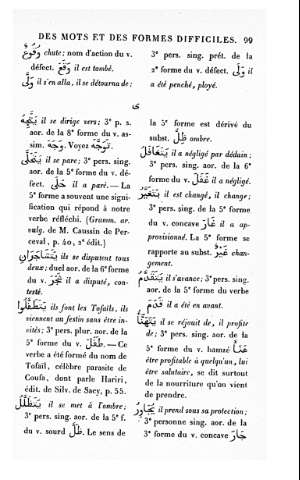 DES MOTS ET DES FORMES DIFFICILES. 99
وُقُوعٌ chute; nom d'action du v.
défect. وَقَعَ il est tombé.
وَلَّى il s'en alla, il se détourna de:
3ᵉ pers. sing. prét. de la
2ᵉ forme du v. défect. وَلَى il
a été penché, ployé.
ى
يَتَّجِهُ il se dirige vers; 3ᵉ p. s.
aor. de la 8ᵉ forme du v. as-
sim. وَجَهَ. Voyez تَوَجَّهَ.
يَتَحَلَّى il se pare; 3ᵉ pers. sing.
aor. de la 5ᵉ forme du v. dé-
fect. حَلَى il a paré. — La
5ᵉ forme a souvent une signi-
fication qui répond à notre
verbe réfléchi. (Gramm. ar.
vulg. de M. Caussin de Per-
ceval, p. 40, 2ᵉ édit.)
يَتَشَاجَرَانِ ils se disputent tous
deux; duel aor. de la 6ᵉ forme
du v. شَجَرَ il a disputé, con-
testé.
يَتَطَفَّلُوا ils font les Tofails, ils
viennent au festin sans être in-
vités; 3ᵉ pers. plur. aor. de la
5ᵉ forme du v. طَفَلَ. — Ce
verbe a été formé du nom de
Tofail, célèbre parasite de
Coufa, dont parle Hariri,
édit. de Silv. de Sacy, p. 55.
يَتَظَلَّلُ il se met à l'ombre;
3ᵉ pers. sing. aor. de la 5ᵉ f.
du v. sourd ظَلَّ. Le sens de
la 5ᵉ forme est dérivé du
subst. ظِلّ ombre.
يَتَغَافَلُ il a négligé par dédain;
3ᵉ pers. sing. aor. de la 6ᵉ
forme du v. غَفَلَ il a négligé.
يَتَغَيَّرُ il est changé, il change;
3ᵉ pers. sing. de la 5ᵉ forme
du v. concave غَارَ il a ap-
provisionné. La 5ᵉ forme se
rapporte au subst. غَيْر chan-
gement.
يَتَقَدَّمُ il s'avance; 3ᵉ pers. sing.
aor. de la 5ᵉ forme du verbe
قَدَمَ il a été en avant.
يَتَهَنَّأُ il se réjouit de, il profite
de; 3ᵉ pers. sing. aor. de la
5ᵉ forme du v. hamzé هَنَأَ
être profitable à quelqu'un, lui
être salutaire, se dit surtout
de la nourriture qu'on vient
de prendre.
يُجَاوِرُ il prend sous sa protection;
3ᵉ personne sing. aor. de la
3ᵉ forme du v. concave جَارَ